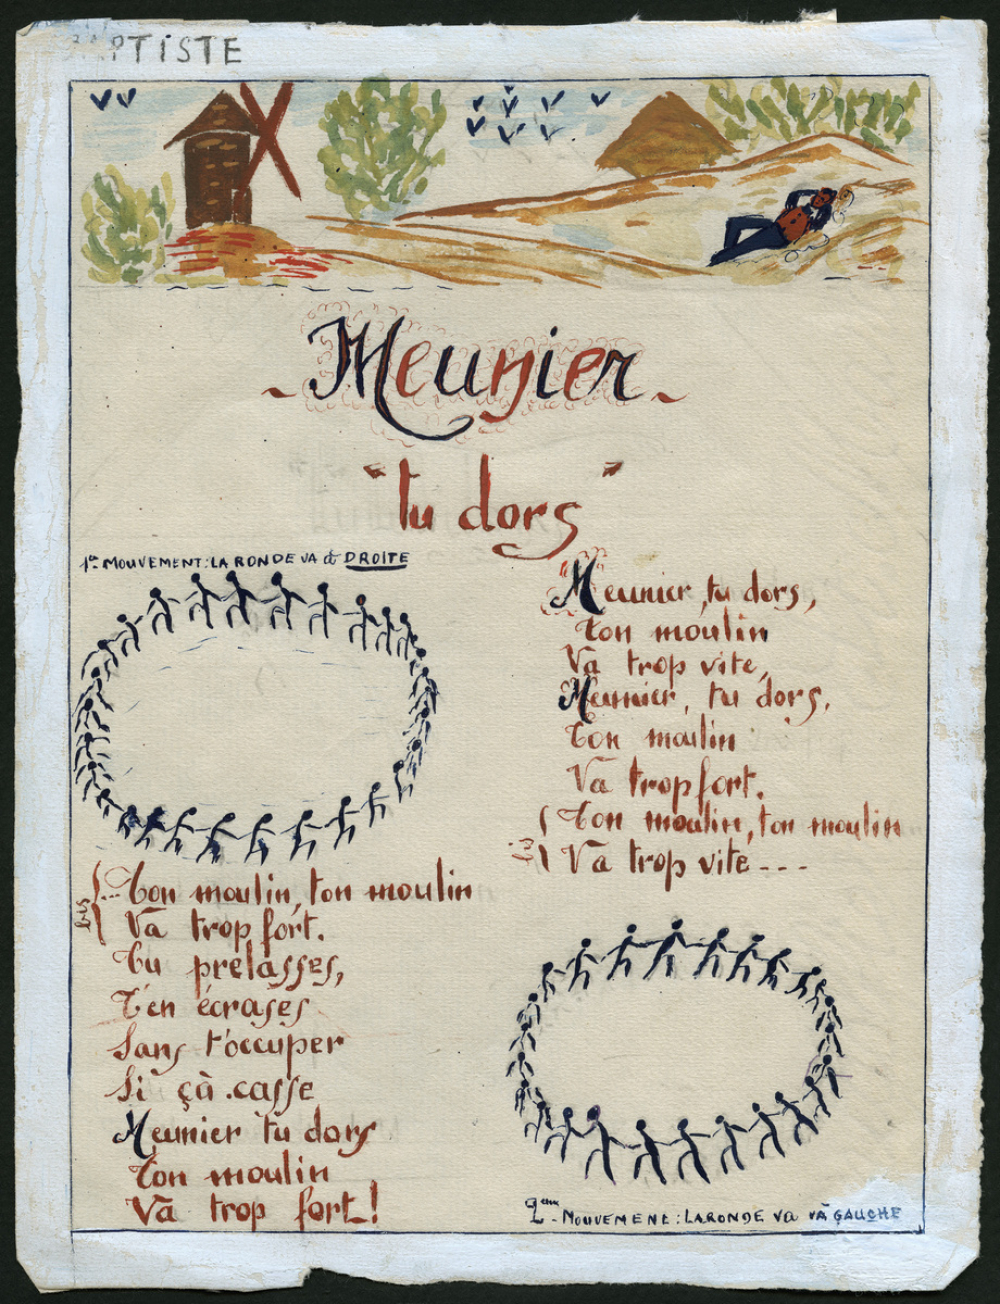 BAPTISTE
Meunier
"tu dors"
1er MOUVEMENT: LA RONDE VA à DROITE
Meunier, tu dors,
Ton moulin
Va trop vite,
Meunier, tu dors,
Ton moulin
Va trop fort.
bis
Ton moulin, ton moulin
Va trop vite - - -
bis
Ton moulin, ton moulin
Va trop fort.
Tu prélasses,
T'en écrases
Sans t'occuper
Si çà casse
Meunier tu dors
Ton moulin
Va trop fort!
2ème MOUVEMENT: LA RONDE VA à GAUCHE